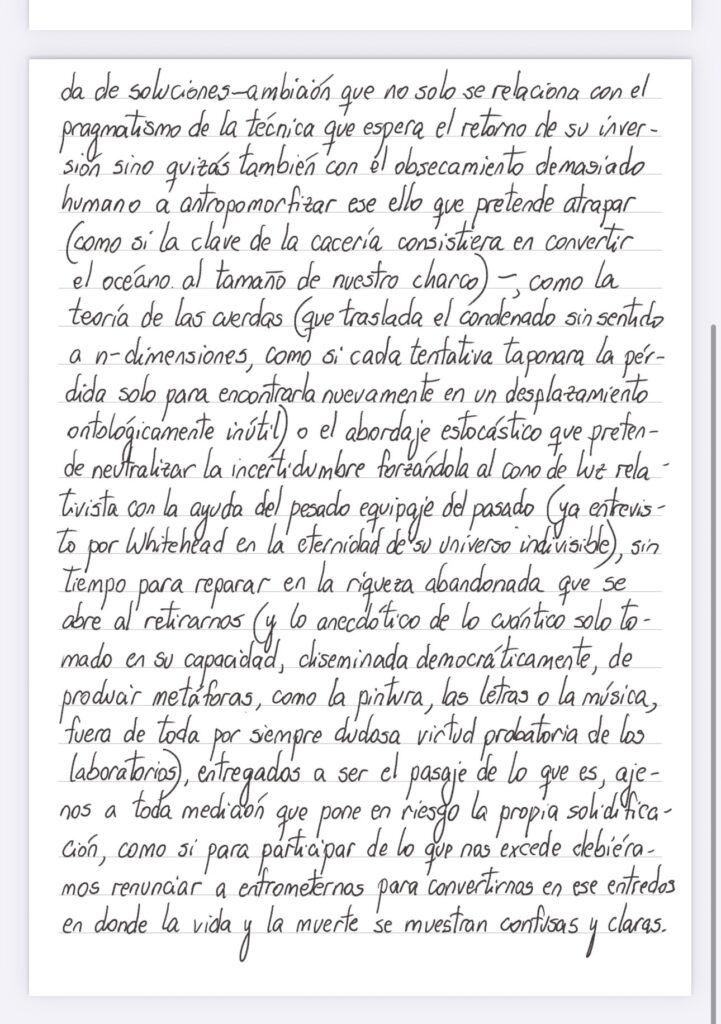 da de soluciones–ambición que no solo se relaciona con el
pragmatismo de la técnica que espera el retorno de su inver-
sión sino quizás también con el obsecamiento demasiado
humano a antropomorfizar ese ello que pretende atrapar
(como si la clave de la cacería consistiera en convertir
el océano al tamaño de nuestro charco) –, como la
teoría de las cuerdas (que traslada el condenado sin sentido
a n-dimensiones, como si cada tentativa taponara la pér-
dida solo para encontrarla nuevamente en un desplazamiento
ontológicamente inútil) o el abordaje estocástico que preten-
de neutralizar la incertidumbre forzándola al cono de luz rela-
tivista con la ayuda del pesado equipaje del pasado (ya entrevis-
to por Whitehead en la eternidad de su universo indivisible), sin
tiempo para reparar en la riqueza abandonada que se
abre al retirarnos (y lo anecdótico de lo cuántico solo to-
mado en su capacidad, diseminada democráticamente, de
producir metáforas, como la pintura, las letras o la música,
fuera de toda por siempre dudosa virtud probatoria de los
laboratorios), entregados a ser el pasaje de lo que es, aje-
nos a toda mediación que pone en riesgo la propia solidifica-
ción, como si para participar de lo que nos excede debiéra-
mos renunciar a entrometernos para convertirnos en ese entredos
en donde la vida y la muerte se muestran confusas y claras.